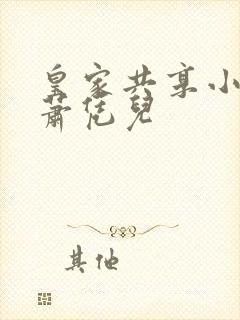 皇家共享小
蕭恁兒
其他